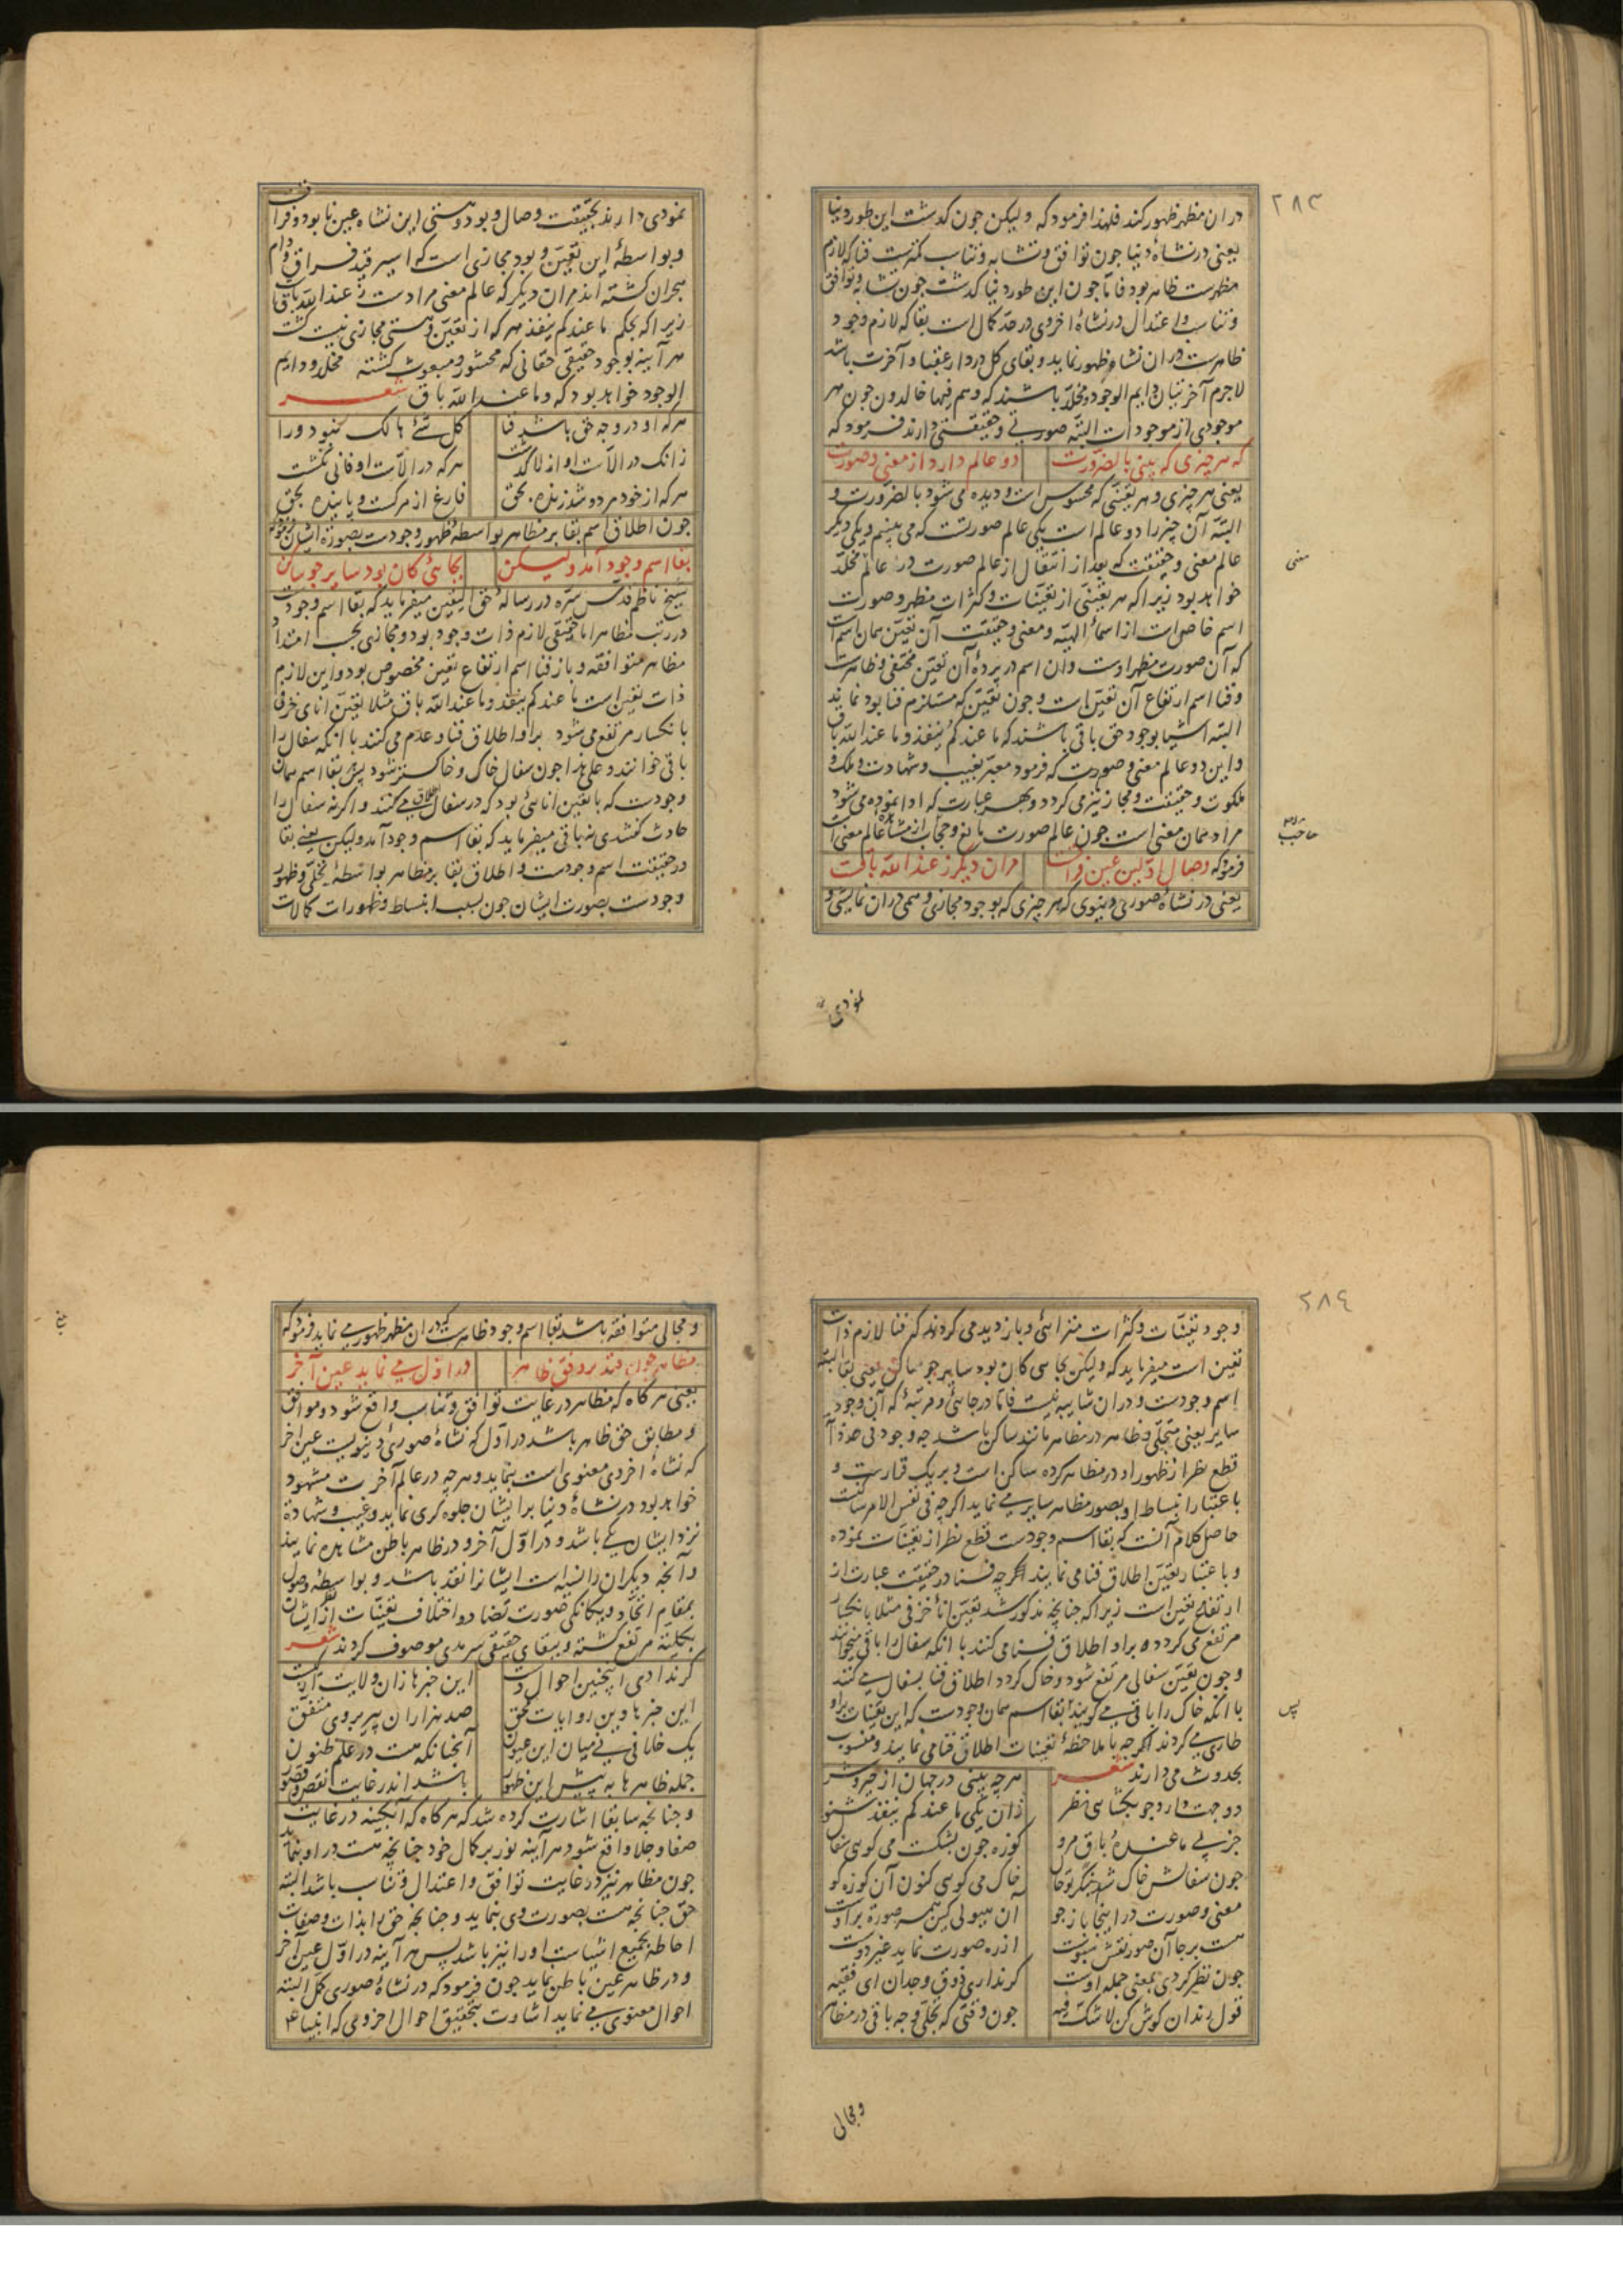 ۲۸۳
دران مظهر ظهور کند فلهذا فرمود که ولیکن جون کذشت این طور دنیا
یعنی در نشاهٔ دنیا جون توافق و تشابه و تناسب فنا که لازم
مظهرست ظاهر بود فاما جون این طور دنیا کذشت جون تشابه و توافق
و تناسب و اعتدال در نشاهٔ اخروی در حد کمال است بقا که لازم وجود
ظاهرست دران نشاه ظهور نماید و بقای کل در دار عقبا و آخرت باشد
لاجرم آخرتیان دایم الوجود و مخلد باشند که وهم فیها خالدون جون هر
موجودی از موجودات البته صورتی و حقیقتی دارند فرمود که
که هر چیزی که بینی بالضرورت دو عالم دارد از معنی و صورت
یعنی هر چیزی و هر تعینی که محسوس است و دیده می شود بالضرورت و
البته آن چیز را دو عالم است یکی عالم صورتست که می بینیم و یکی دیکر
عالم معنی و حقیقت که بعد از انتقال از عالم صورت در عالم مخلد
معنی
خواهد بود زیرا که هر تعینی از تعینات و کثرات مظهر و صورت
اسم خاص است از اسماء الهیه و معنی و حقیقت آن تعین همان اسم است
که آن صورت مظهر اوست وان اسم در پردهٔ آن تعین مختفی و ظاهرست
و فنا اسم ارتفاع آن تعین است و جون تعین که مستلزم فنا بود نماند
البته اشیا بوجود حق باقی باشند که ما عندکم ینفد و ما عند الله باق
واین دو عالم معنی و صورت که فرمود معبر بغیب و شهادت و ملک و
ملکوت و حقیقت و مجاز نیز می کردد و بهر عبارت که ادا نموده می شود
مراد همان معنی است جون عالم صورت مانع و حجاب از مشاهدهٔ عالم معنی است
حاجب
فرمود که وصال اولین عین فراقست مران دیکر ز عند الله باقست
یعنی در نشاهٔ صوری دنیوی که هر چیزی که بوجود مجازی وهمی دران نمایشی و
نمودی
نمودی دارند بحقیقت وصال و بود و هستی این نشاه عین نابود و فراقست
و بواسطهٔ این تعین و بود مجازی است که اسیر قید فراق و دام
هجران کشته اند مران دیکر که عالم معنی مرادست ز عند الله باقی
زیرا که بحکم ما عندکم ینفد هر که از تعین و هستی مجازی نیست کشت
هر آینه بوجود حقیقی حقانی که محشور و مبعوث کشته مخلد و دایم
الوجود خواهد بود که وما عند الله باق شعر
هرکه او در وجه حق باشد فنا کل شیء هالک نبود ورا
زانک در الاست او از لا کذشت هرکه در الاست او فانی نکشت
هرکه از خود مرد و شد زنده بحق فارغ از مرکست و پاینده بحق
جون اطلاق اسم بقا بر مظاهر بواسطهٔ ظهور وجودست بصورة ایشان فرمود که
بقا اسم وجود آمد ولیکن بجائی کان بود سایر جو ساکن
شیخ ناظم قدس سره در رسالهٔ حق الیقین میفرماید که بقا اسم وجودست
در رتب مظاهر اما حقیقی لازم ذات وجود بود و مجازی بحسب امتداد
مظاهر متوافقه و باز فنا اسم ارتفاع تعین مخصوص بود واین لازم
ذات تعین است ما عندکم ینفد وما عند الله باق مثلا تعین انای خزفی
بانکسار مرتفع می شود براو اطلاق فنا و عدم می کنند با آنکه سفال را
باقی خوانند و علی هذا جون سفال خاک و خاکستر شود پس بقا اسم همان
وجودست که با تعین انائی بود که در سفال اطلاق می کنند و اکرنه سفال را
حادث کفتندی نه باقی میفرماید که بقا اسم وجود آمد ولیکن یعنی بقا
در حقیقت اسم وجودست و اطلاق بقا بر مظاهر بواسطهٔ تجلی و ظهور
وجودست بصورت ایشان جون بسبب انبساط و ظهورات کمالات
۲۸٤
وجود تعینات و کثرات متزائی و بازدید می کردند که فنا لازم ذات
تعین است میفرماید که ولیکن بجائی کان بود سایر جو ساکن یعنی بقا البته
اسم وجودست و دران شایبه نیست فاما در جائی و مرتبهٔ که آن وجود
سایر یعنی متجلی و ظاهر در مظاهر مانند ساکن باشد جه وجود فی حد ذاته
قطع نظر از ظهور او در مظاهر کرده ساکن است و بر یک قرارست و
باعتبار انبساط او بصور مظاهر سایر می نماید اکرچه فی نفس الامر ساکنست
حاصل کلام آنست که بقا اسم وجودست قطع نظر از تعینات نموده
و باعتبار تعین اطلاق فنا می نمایند اکرچه فنا در حقیقت عبارت از
ارتفاع تعین است زیرا که جنانچه مذکور شد تعین اناء خزفی مثلا بانکسار
مرتفع می کردد و براو اطلاق فنا می کنند با آنکه سفال را باقی میخوانند
و جون تعین سفالی مرتفع شود و خاک کردد اطلاق فنا بسفال می کنند
با آنکه خاک را باقی می کویند بقا اسم همان وجودست که این تعینات براو
پس
طاری می کردند اکرچه با ملاحظهٔ تعینات اطلاق فنا می نمایند و منسوب
بحدوث می دارند شعر هرچه بینی در جهان از خیر و شر
دو جهت دارد جو بکشائی نظر زان یکی ما عندکم ینفد شنو
جز پی ما عنده باق مرو کوزه جون بشکست می کوئی سفال
جون سفالش خاک شد بنکر تو حال خاک می کوئی کنون آن کوزه کو
معنی و صورت در اینجا باز جو آن هیولی کین همه صورة براوست
هست برجا آن صور نقشش نبوت از ره صورت نماید غیر دوست
جون نظر کردی بمعنی جمله اوست کرنداری ذوق وجدان ای فقیه
قول رندان کوش کن لا شک فیه جون وقتی که تجلی وجه باقی در مظاهر
ومجالی
و مجالی متوافقه باشد بقا اسم وجود ظاهرست که دران مظهر ظهور می نماید فرمود که
مظاهر جون فتد بر وفق ظاهر در اول می نماید عین آخر
یعنی هرکاه که مظاهر در غایت توافق و تناسب واقع شود و موافق
و مطابق حق ظاهر باشد در اول که نشاهٔ صوری دنیویست عین آخر
که نشاهٔ اخروی معنوی است بنماید و هرچه در عالم آخرت مشهود
خواهد بود در نشاهٔ دنیا بر ایشان جلوه کری نماید و غیب و شهادة
نزد ایشان یکی باشد و در اول آخر و در ظاهر باطن مشاهده نمایند
و آنچه دیکران را نسیه است ایشانرا نقد باشد و بواسطهٔ وصول
بمقام اتحاد و یکانکی صورت تضاد و اختلاف تعینات از نظر ایشان
بکلیته مرتفع کشته و ببقای حقیقی سرمدی موصوف کردند شعر
کر ندادی اینچنین احوال دست این خبرها زان ولایت از کجاست
این خبرها وین روایات محق صد هزاران پیر بر وی متفق
یک خلافی نی میان این عیون آنجنانکه هست در علم ظنون
جمله ظاهرها به پیش این ظهور باشد اندر غایت نقص و قصور
و جنانچه سابقا اشارت کرده شد که هرکاه که آبکینه در غایت
صفا و جلا واقع شود هر آینه نور بر کمال خود جنانچه هست در او بنماید
جون مظاهر نیز در غایت توافق و اعتدال و تناسب باشد البته
حق جنانچه هست بصورت وی بنماید و جنانچه حق را بذات و صفات
احاطه بجمیع اشیاست اورا نیز باشد پس هر آینه در اول عین آخر
و در ظاهر عین باطن نماید جون فرمود که در نشاهٔ صوری کمل البته
احوال معنوی می نماید اشارت بتحقیق احوال اخروی که انبیاء